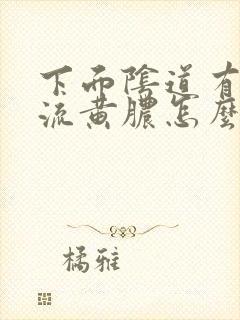 下面陰道有
流黄膿怎麼
橘雅